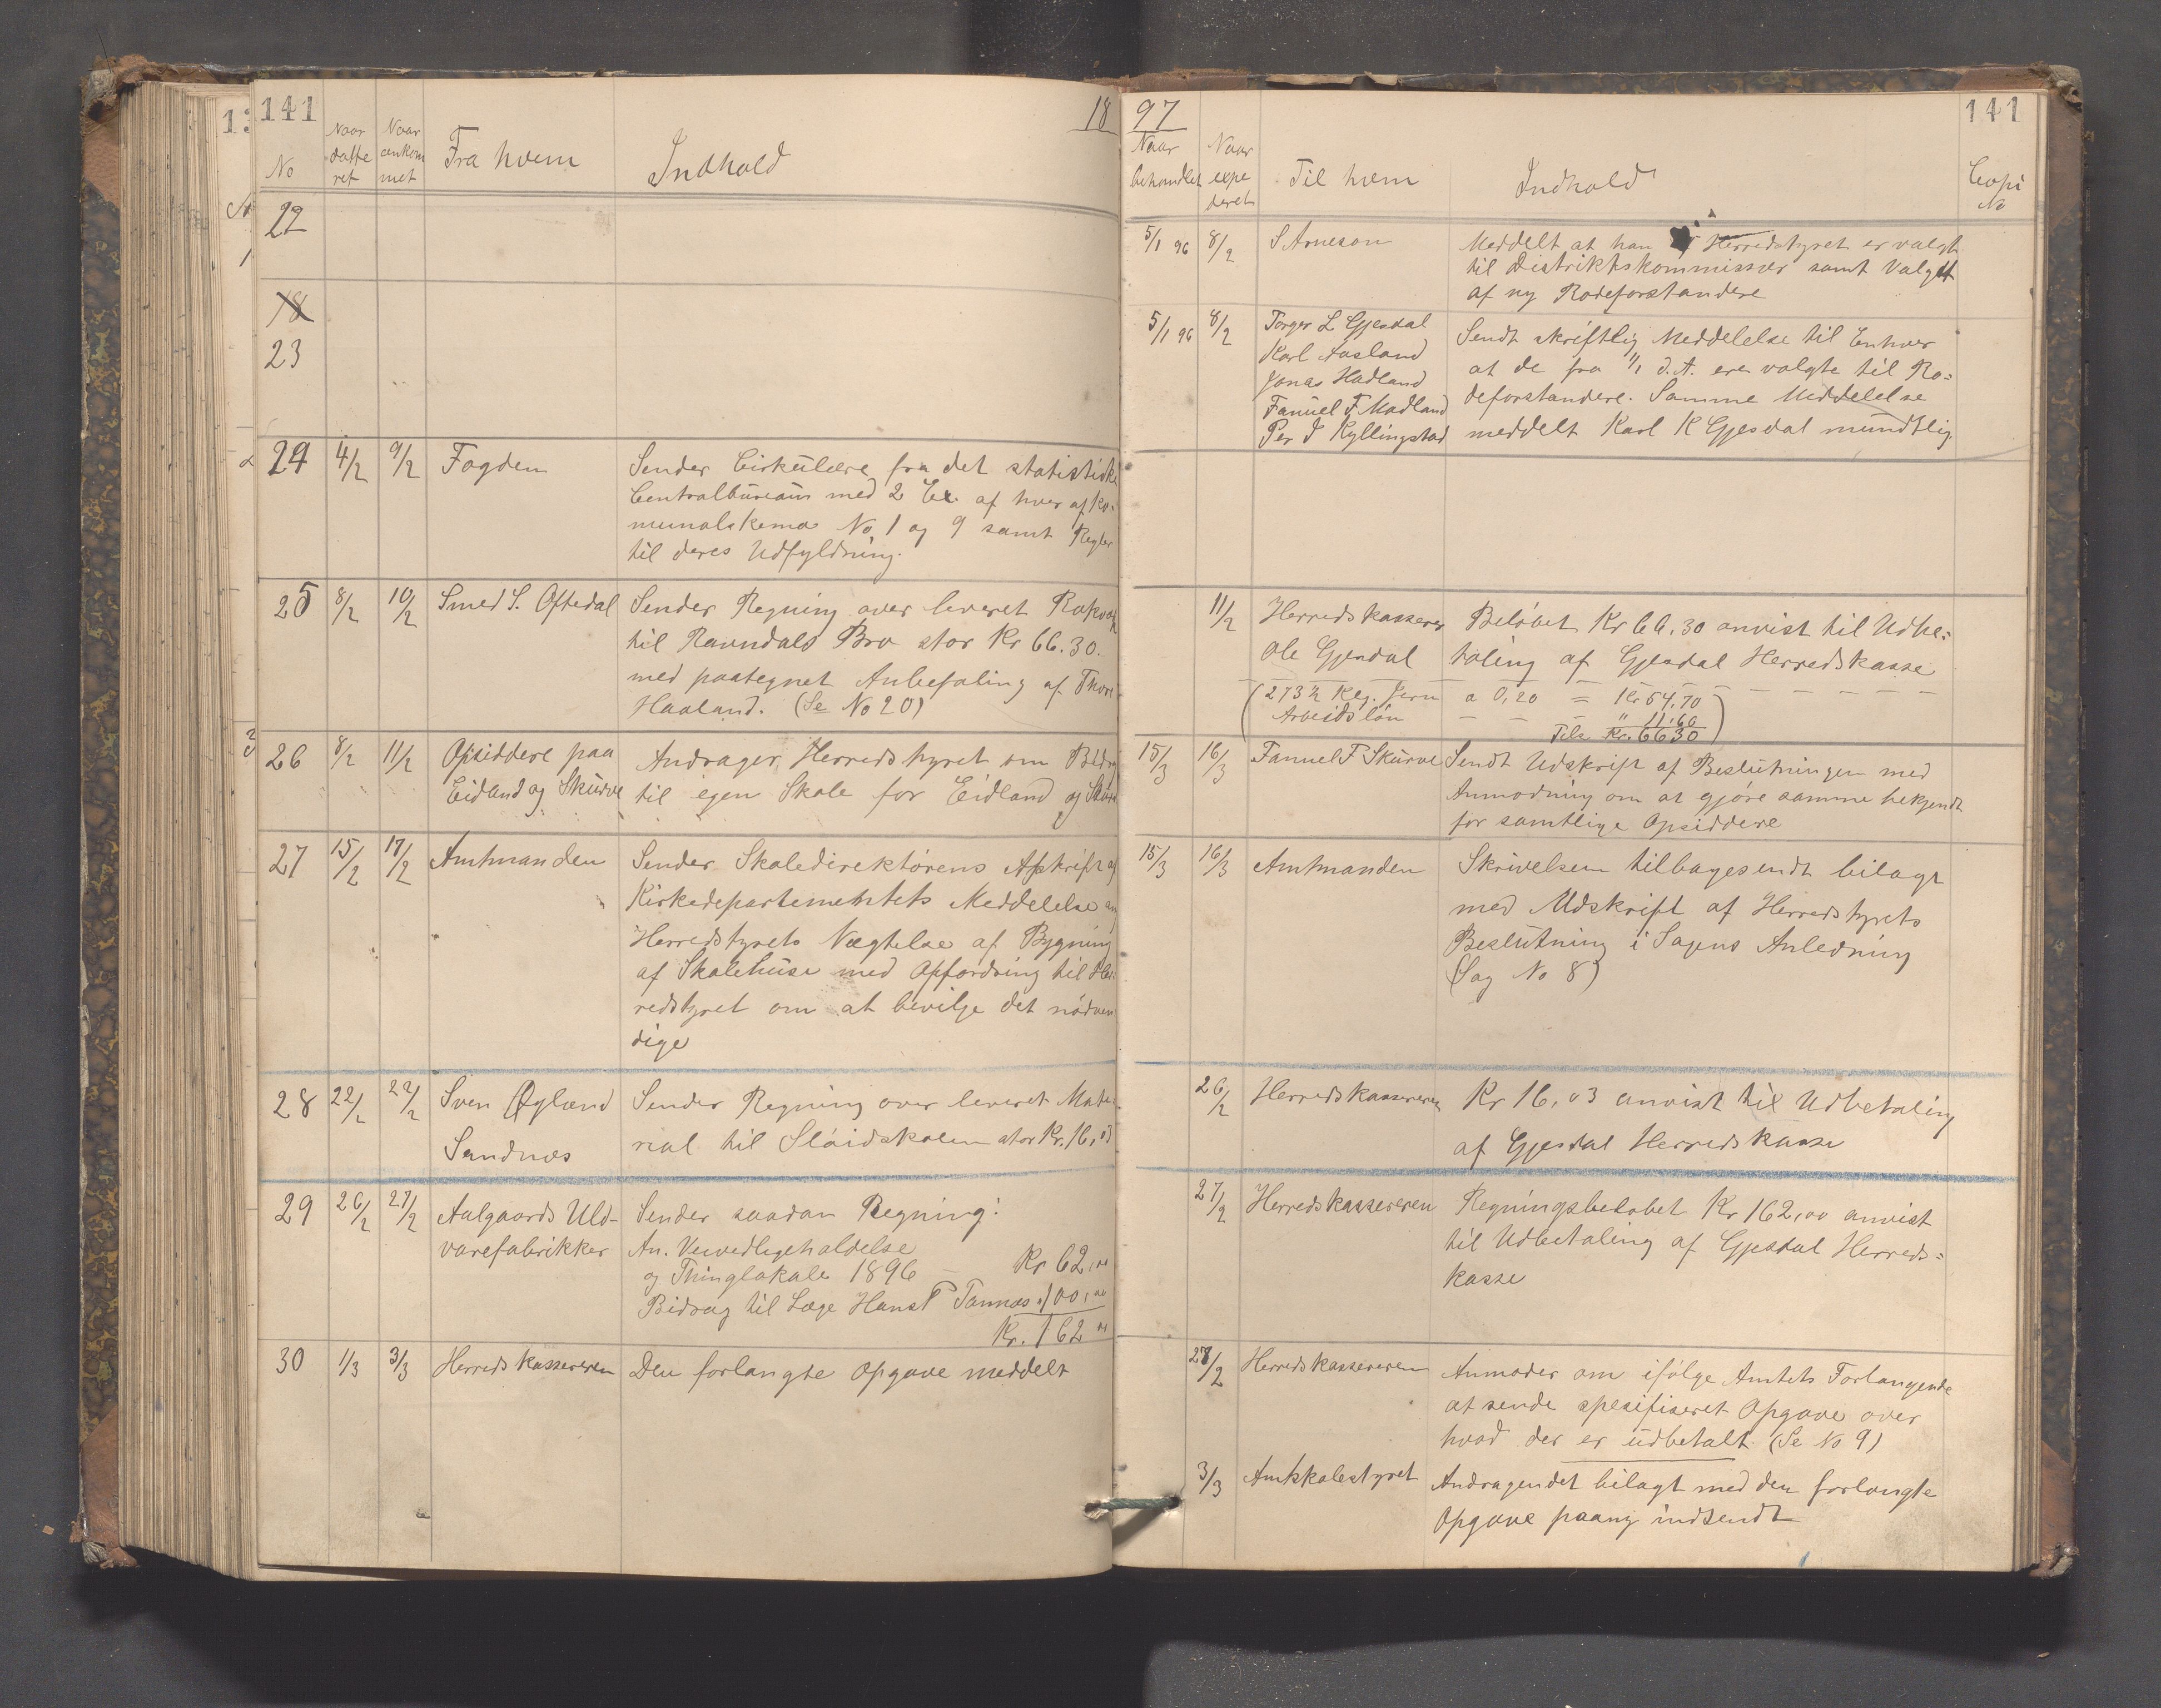 141
18
No
Naar datte ret
Naar ankom met
Fra hvem
Indhold
22
18
23
24 4/2 9/2 Fogden
Sender Cirkulære fra det statistiske
Centralbureau med 2 Ex. af hver af Ko-
munalskema No 1 og 9 samt Regler
til deres Udfyldning.
25 8/2 10/2 Smed S. Oftedal
Sender Regning over leveret
til Ravndals Bro stor Kr 66.30.
med paategnet Anbefaling af
Haaland. (Se No 20)
26 8/2 11/2 Opsiddere paa
Eidland og Skurve
Andrager Herredstyret om
til egen Skole for Eidland og
27 15/2 17/2 Amtmanden
Sender Skoledirektørens Afskrift af
Kirkedepartementets Meddelelse
Herredstyrets Nægtelse af Bygning
af Skolehuse med Opfordring til Her-
redstyret om at bevilge det nødven
dige
28 22/2 22/2 Sven Øglænd
Sandnæs
Sender Regning over leveret Mate-
rial til Sløidskolen stor Kr. 16,03
29 26/2 27/2 Aalgaards Uld-
varefabrikker
Sender saadan Regning:
An. Vewedligeholdelse
og Thinglokale 1896 — Kr 62,00
Bidrag til Læge Hans P Tannæs " 100,00
Kr. 162 00
30 1/3 3/3 Herredskassereren
Den forlangte Opgave meddelt
97
141
Naar behandlet
Naar expe deret
Til hvem
Indhold
Copi No
5/1 96 8/2 S Arneson
Meddelt at han Herredstyret er valgt
til Distriktskommissær samt Valget
af ny Rodeforstandere
5/1 96 8/2 Torger L Gjesdal
Karl Aasland
Jonas Hadland
Fanuel F Madland
Per J Kyllingstad
Sendt skriftlig Meddelelse til Enhver
at de fra 1/1 d.A. ere valgte til Ro=
deforstandere. Samme Meddelelse
meddelt Karl K Gjesdal mundtlig
11/2 Herredskasserer
Ole Gjesdal
Beløbet Kr 66,30 anvist til Udbe=
taling af Gjesdal Herredskasse
(273½ Klg. Jern a 0,20 = Kr 54,70
Arbeidsløn — — — " 11.60)
Tils Kr. 66 30
15/3 16/3 Fanuel F Skurve
Sendt Udskrift af Beslutningen med
Anmodning om at gjøre samme bekjendt
for samtlige Opsiddere
15/3 16/3 Amtmanden
Skrivelsen tilbagesendt bilagt
med Udskrift af Herredstyrets
Beslutning i Sagens Anledning
(Sag No 8)
26/2 Herredskassereren
Kr 16,03 anvist til Udbetaling
af Gjesdal Herredskasse
27/2 Herredskassereren
Regningsbeløbet Kr 162,00 anvist
til Udbetaling af Gjesdal Herreds=
kasse
28/2 Herredskassereren
Anmoder om ifølge Amtets Forlangende
at sende spesifiseret Opgave over
hvad der er udbetalt (Se No 9)
3/3 Amtskolestyret
Andragendet bilagt med den forlangte
Opgave paany indsendt